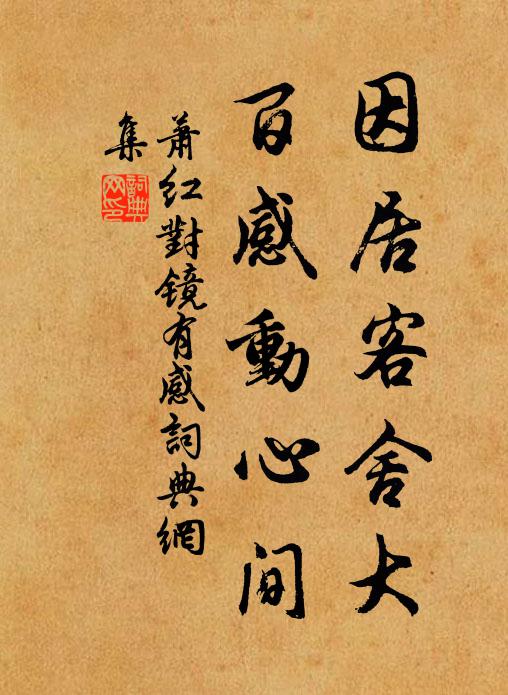 因居客舍大
百感動心间
萧红對镜有感詞典網
集
詞典
网印